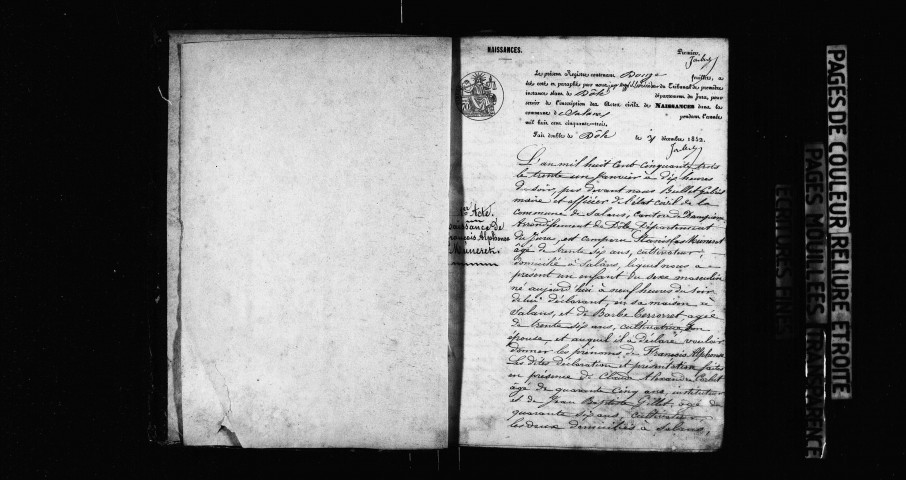 NAISSANCES.
Premier
Le présent Registre contenant Douze feuillets, a
été coté et paraphé par nous, du Tribunal de première
instance séant à Dôle département du Jura, pour
servir à l'inscription des Actes civils de NAISSANCES dans la
commune de Salans pendant l'année
mil huit cent cinquante-trois.
Fait double à Dôle le décembre 1852.
1er Acte.
Naissance de
François Alphonse
Muneret.
L'an mil huit cent cinquante trois
le trente un janvier à dix heures
du soir, par devant nous
maire et officier de l'état civil de la
Commune de Salans, Canton de Dampierre
Arrondissement de Dôle Département
du Jura, est comparu Stanislas Muneret
âgé de trente six ans, cultivateur,
domicilié à Salans, lequel nous a
présenté un enfant du sexe masculin
né aujourd'hui à neuf heures du soir
de lui déclarant, en sa maison à
Salans, et de Barbe âgée
de trente six ans, cultivatrice, son
épouse, et auquel il a déclaré vouloir
donner les prénoms de François Alphonse.
Les dites déclaration et présentation faites
en présence de Claude Alexandre
âgé de quarante cinq ans, instituteur
et de Jean Baptiste Gillet, âgé de
quarante six ans, cultivateur
les deux domiciliés à Salans,
PAGES DE COULEUR RELIURE ETROITE
PAGES MOUILLEES TRANSPARENCE
ECRITURES FINES